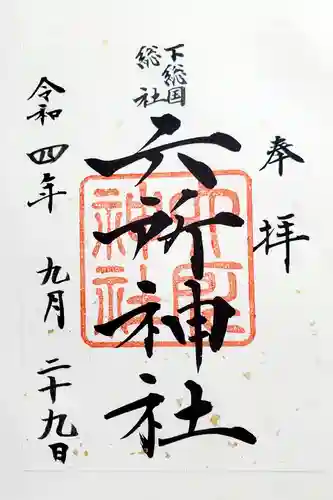 奉拝
下総国
総社
六所神社
六所神社
令和四年 九月 二十九日